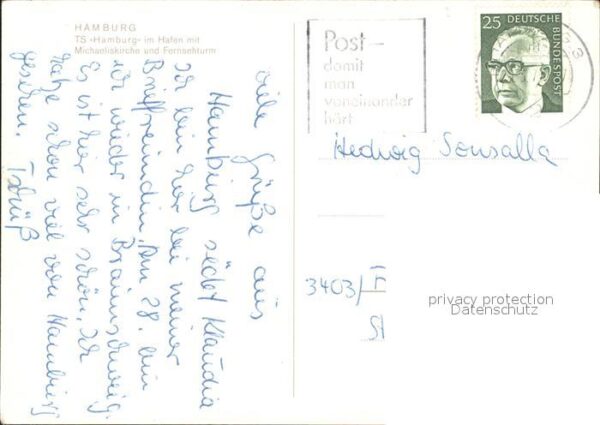 HAMBURG
TS »Hamburg« im Hafen mit
Michaeliskirche und Fernsehturm
viele Grüße aus
Hamburg sedet Klaudia
Ich bin hier bei meiner
Brieffreundin. Am 28. bin
ich wieder in Braunschweig.
Es ist hier sehr schön. Ich
habe schon viel von Hamburg
gesehen. Tschüß
Post –
damit
man
voneinander
hört
25 DEUTSCHE
BUNDESPOST
Hedwig Sonsalla
3403/
privacy protection
Datenschutz